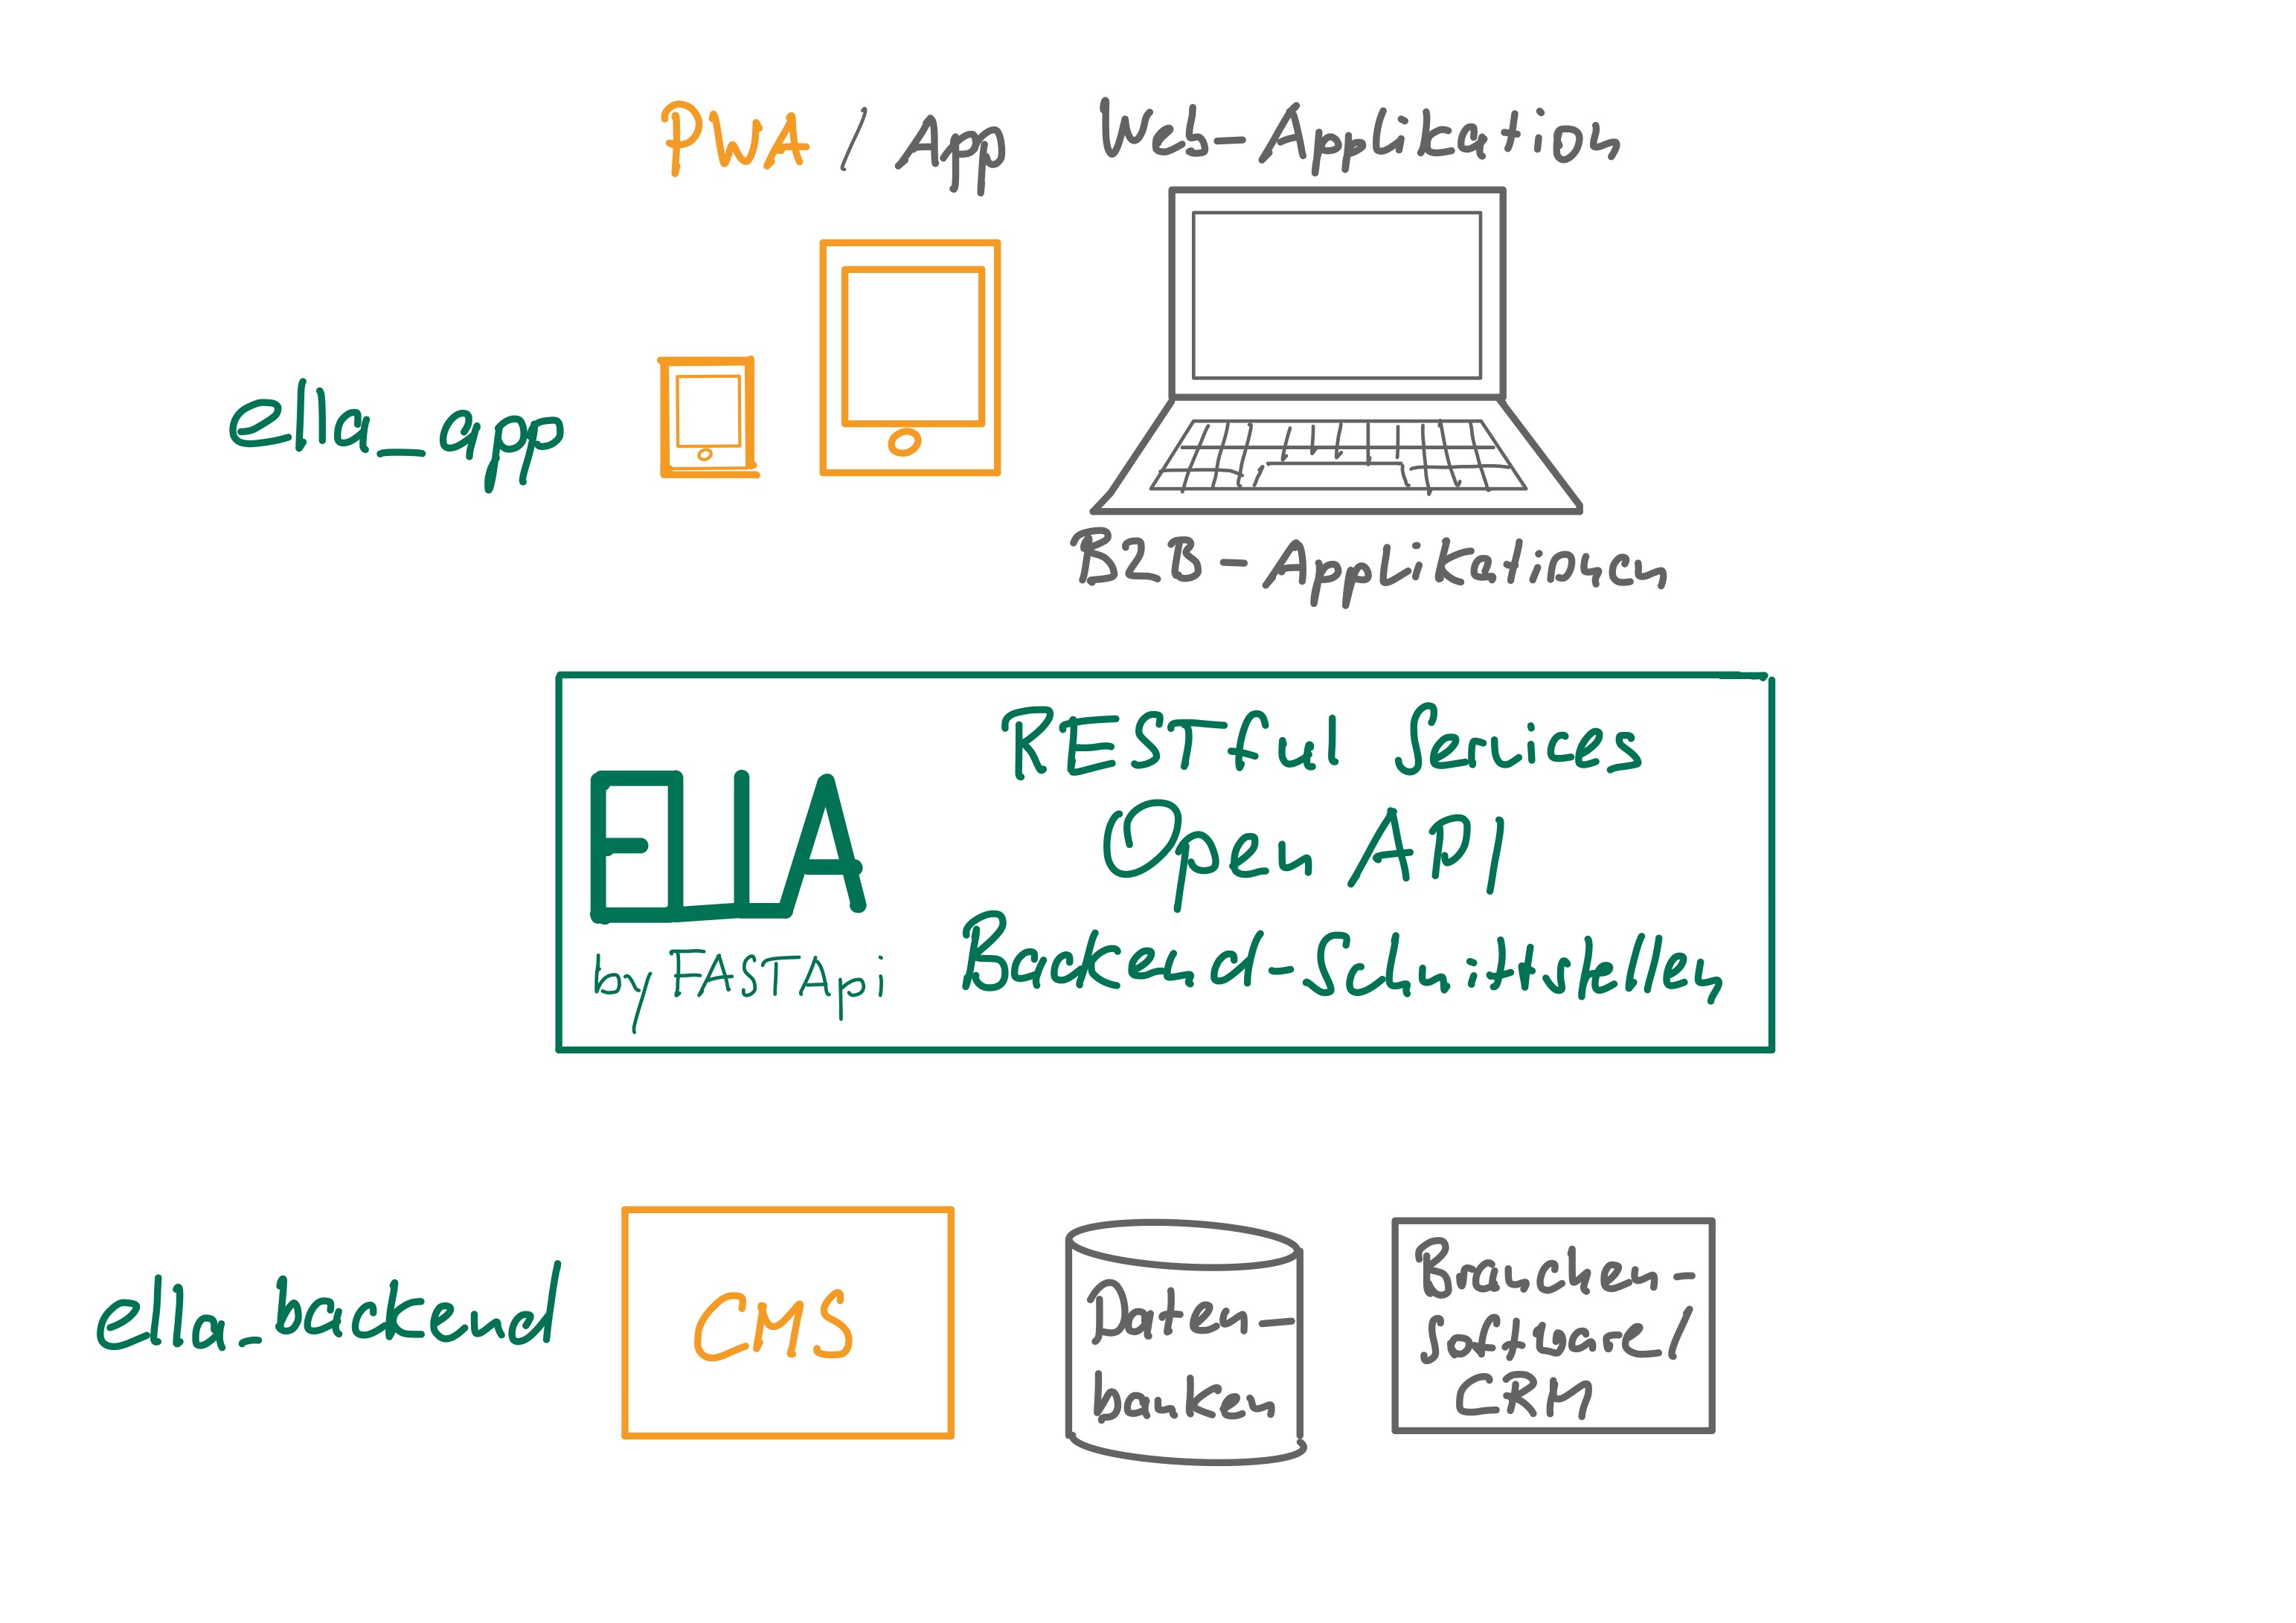 PWA / App
Web-Applikation
ella_app
B2B-Applikationen
RESTful Services
Open API
Backend-Schnittstellen
ELLA
by FASTApi
ella_backend
CMS
Daten-
banken
Branchen-
software/
CRM